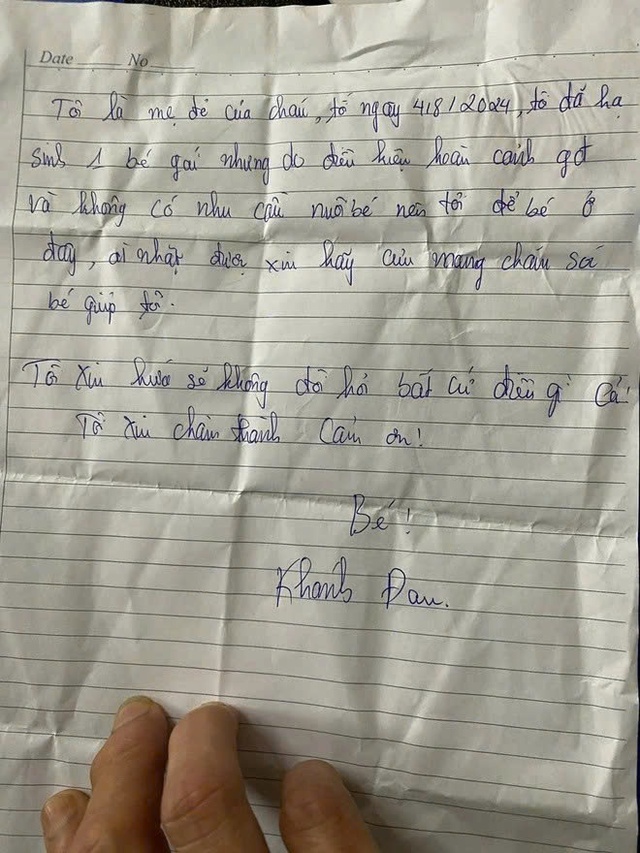 Date No
Tôi là mẹ đẻ của cháu, tố ngay 4/8/2024, tô đã hạ
sinh 1 bé gái nhưng do điều kiện hoàn cảnh gđ
và không có nhu cầu nuôi bé nên tôi để bé ở
đay, ai nhặt được xin hãy cưu mang cháu
bé giúp tô.
Tô xin hứa sẻ không đồ hỏ bất cứ điều gì cả!
Tô xin chân thành cảm ơn!
Bé!
Khanh Đan.